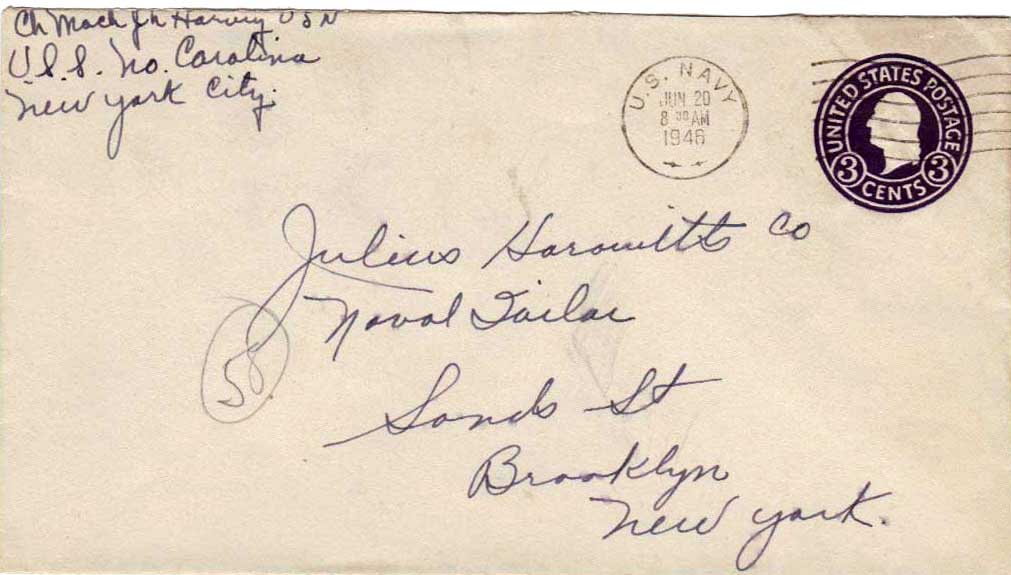 Ch Mach Jh Harvey USN
U.S.S. No. Carolina
New York City.
U.S. NAVY
JUN 20
8 30 AM
1946
UNITED STATES POSTAGE
3 CENTS 3
Julius Horowitts Co
Naval Tailor
58
Sands St
Brooklyn
New York.